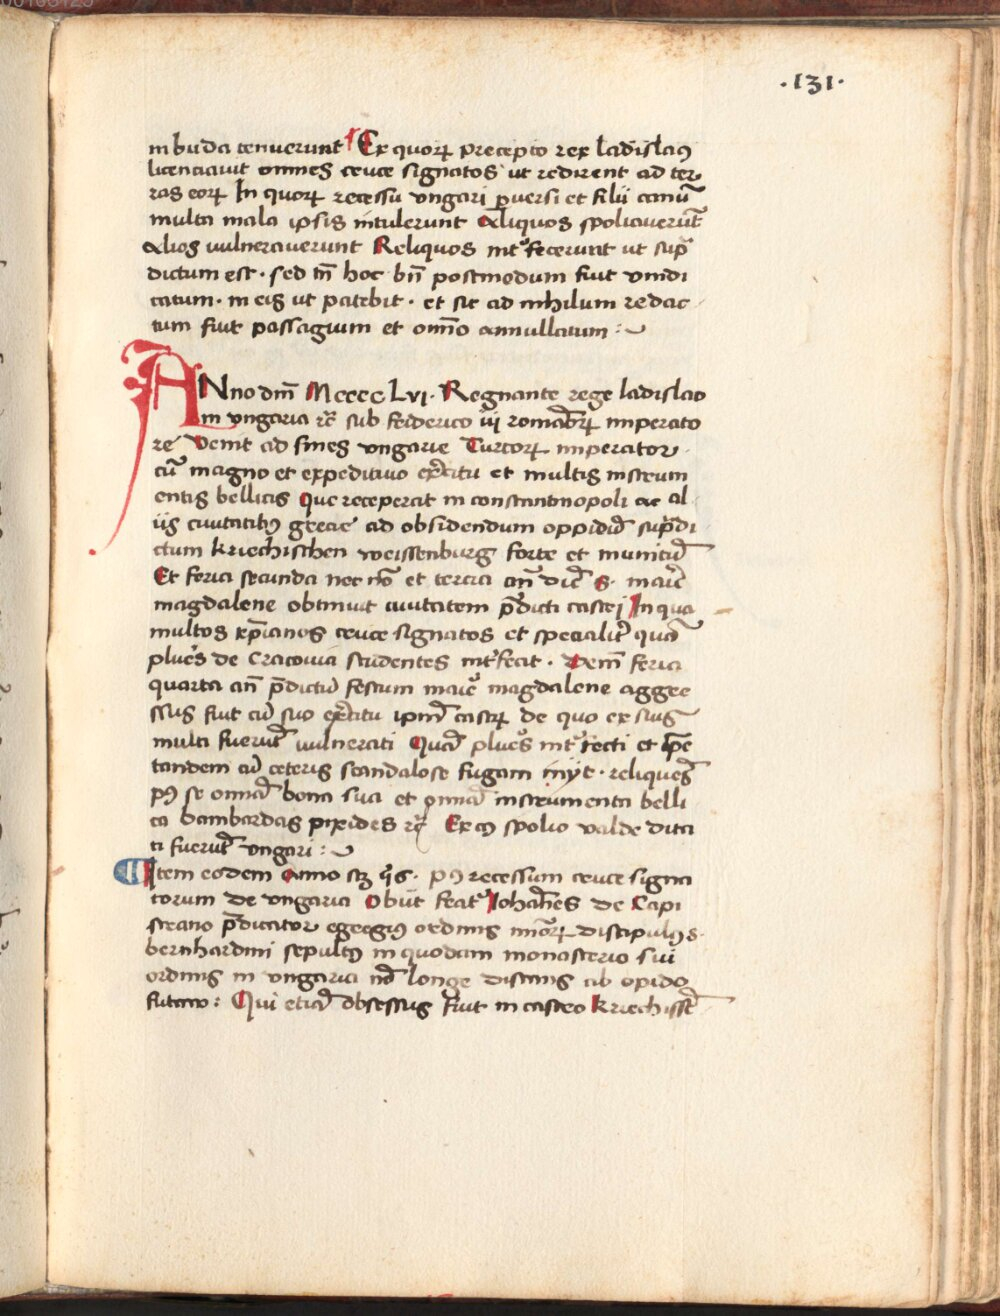 .131.
in buda tenuerunt Ex quorꝝ precepto rex ladislaꝰ
licenciauit omnes cruce signatos ut redirent ad ter
ras eorꝝ In quorꝝ recessu vngari ꝑuersi et filii canū
multa mala ipsis intulerunt Aliquos spoliauerūt
Alios vulnerauerunt Reliquos int̉fecerunt ut sup̄
dictum est . sed tn̄ hoc bn̄ postmodum fuit vindi
catum . in eis ut patebit . et sic ad nihilum redac
tum fuit passagium et om̄o annullatum :~
ANno dm̄ Mcccc Lvi . Regnante rege ladislao
in vngaria ꝛc̄ sub friderico iii romaōrꝝ imperato
re Venit ad fines vngarie Turcorꝝ imperator
cū magno et expeditiuo ex̄ercitu et multis instrum
entis bellicis Que receperat in constantinopoli ac al
iis ciuitatibꝰ grecie ad obsidendum oppidū sup̄di
ctum kriechischen weissenburg forte et munitū
Et feria secunda nec nō et tercia an̄ diē s. marie
magdalene obtinuit ciuitatem p̄dicti castri In qua
multos xp̄ianos cruce signatos et specialit̉ quā
plures de Cracouia studentes int̉fecit . Demū feria
quarta an̄ p̄dictū festum marie magdalene aggre
ssus fuit cū suo ex̄ercitu ipm̄ castrꝝ de quo ex suis
multi fuerūt vulnerati Quā plures int̉fecti et ip̄e
tandem cū ceteris scandalose fugam inyt . reliquens
pꝰ se omnia bona sua et omnia instrumenta belli
ca bambardas pixides ꝛc̄ Ex cꝰ spolio valde dita
ti fuerūt vngari :~
Item eodem Anno scꝫ 56 . pꝰ recessum cruce signa
torum de vngaria Obiit frat̉ Iohānes de Capi
strano p̄dicator egregiꝰ ordinis minorꝝ discipulꝰ s.
bernhardini sepultꝰ in quodam monasterio sui
ordinis in vngaria nō longe distans ab opido
futaw : Qui etiā obsessus fuit in castro kriechissē